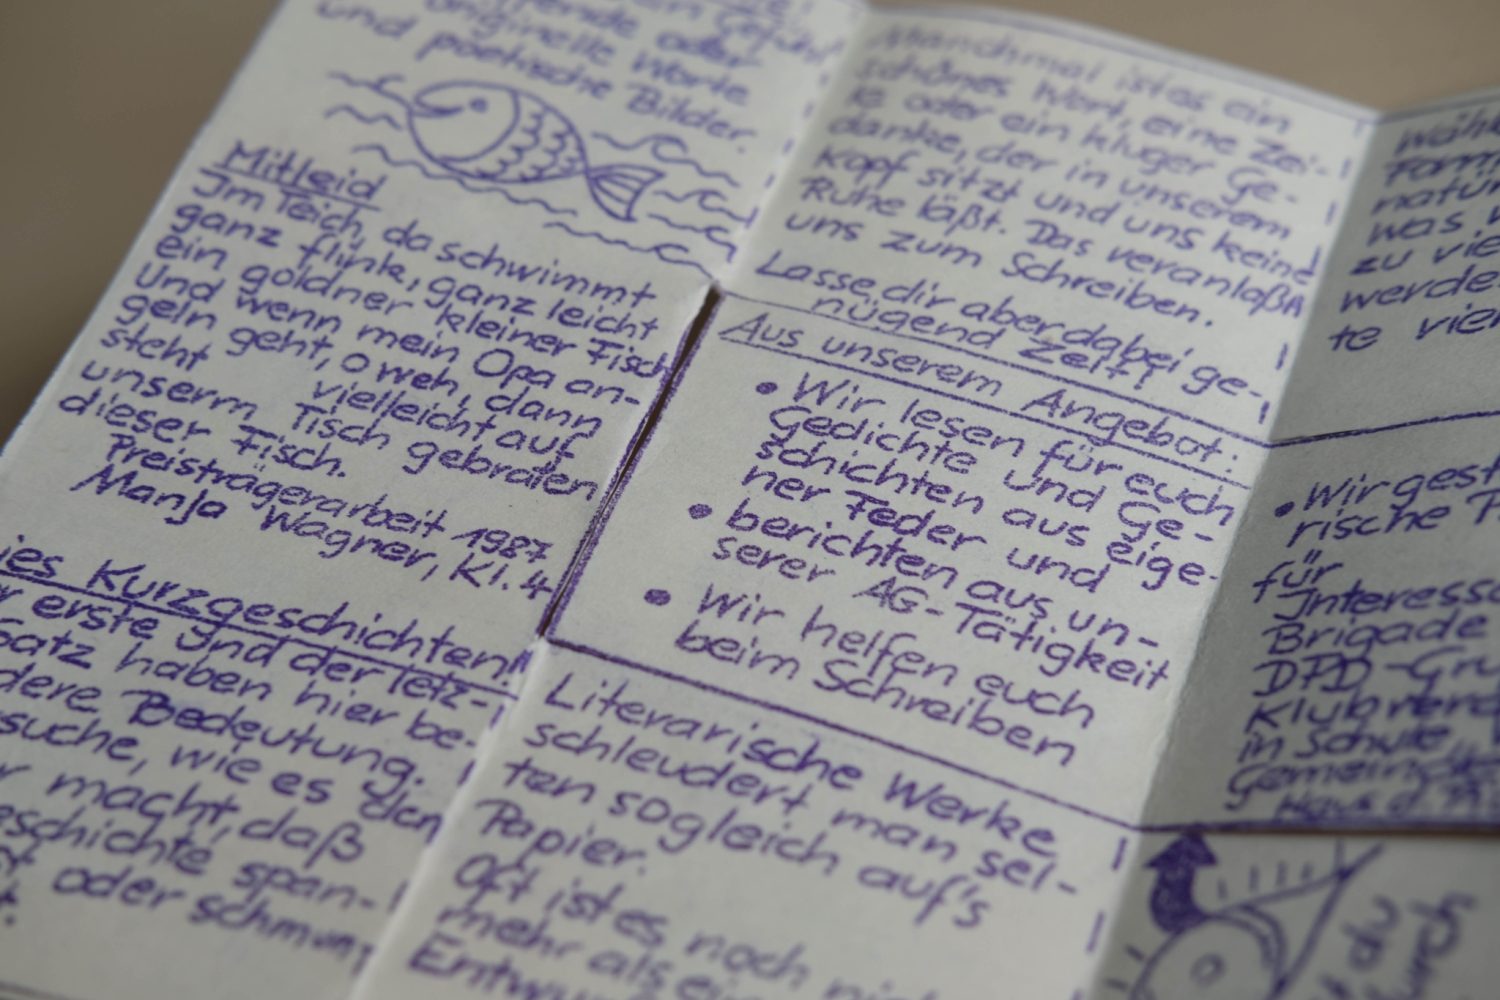 originelle Worte
und poetische Bilder.
Mitleid
Im Teich, da schwimmt
ganz flink, ganz leicht
ein goldner kleiner Fisch
Und wenn mein Opa an-
geln geht, o weh, dann
steht vielleicht auf
unserm Tisch gebraten
dieser Fisch.
Preisträgerarbeit 1987
Manja Wagner, Kl. 4
Kurzgeschichten!
erste und der letz-
Satz haben hier be-
dere Bedeutung.
suche, wie es den
macht, daß
eschichte span-
oder schmun
Manchmal ist es ein
schönes Wort, eine Zei-
le oder ein kluger Ge-
danke, der in unserem
Kopf sitzt und uns keine
Ruhe läßt. Das veranlaßt
uns zum Schreiben.
Lasse dir aber dabei ge-
nügend Zeit!
Aus unserem Angebot:
• Wir lesen für euch
Gedichte und Ge-
schichten aus eige-
ner Feder und
• berichten aus un-
serer AG-Tätigkeit
• Wir helfen euch
beim Schreiben
Literarische Werke
schleudert man sel-
ten sogleich auf's
Papier.
Oft ist es noch
mehr als
was
zu vie
werde
te
• Wir gest
rische
für
Interesse
Brigade
DFD-Gru
in Schule
du